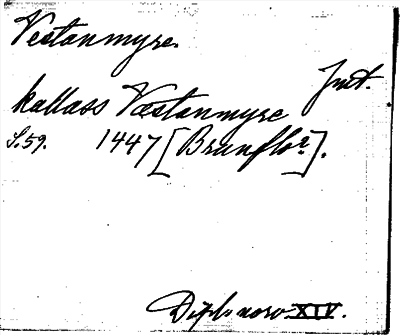 Vestanmyre.
Jmt.
kallass Væstanmyre
S. 59. 1447 [Brunflo].
Diplom. XIV.